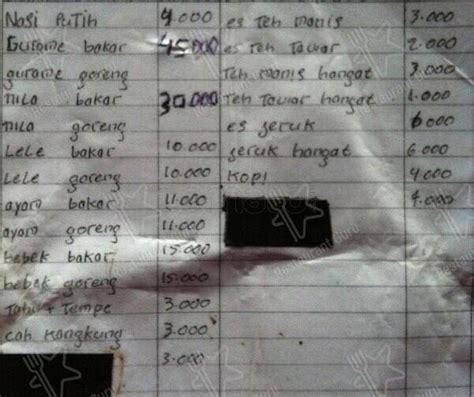 Nasi Putih 4.000 es Teh manis 3.000
Gurame bakar 45.000 es Teh Tawar 2.000
gurame goreng Teh manis hangat 3.000
nila bakar 30.000 Teh Tawar hangat 1.000
nila goreng es jeruk 6000
Lele bakar 10.000 jeruk hangat 6.000
Lele goreng 10.000 Kopi 4.000
ayam bakar 11.000 4.000
ayam goreng 11.000
bebek bakar 15.000
bebek goreng 15.000
Tahu + Tempe 3.000
cah kangkung 3.000
3.000